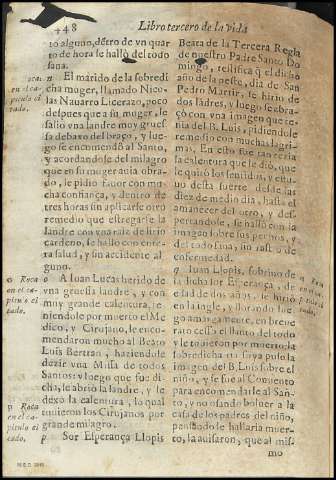 448
Libro tercero de la vida
to alguno, dẽtro de vn quar
to de hora se hallò del todo
sana.
El marido de la sobredi
cha muger, llamado Nico-
las Nauarro Licerazo, poco
despues que a su muger, le
salio vna landre muy grues
sa debaxo del braço, y lue-
go se encomendò al Santo,
y acordandole del milagro
que en su muger auia obra-
do, le pidio fauor con mu-
cha confiança, y dentro de
tres horas sin aplicarle otro
remedio que estregarle la
landre con vna raiz de lirio
cardeno, se hallo con ente-
ra salud, y sin accidente al
guno.
o Roca
en el ca-
pitulo ci
tado.
o A Iuan Lucas herido de
vna gruessa landre, y con
muy grande calentura, te-
niendole por muerto el Me
dico, y Cirujano, le enco-
mendaron mucho al Beato
Luis Bertran, haziendole
dezir vna Missa de todos
Santos: y luego que fue di-
cha, se abrio la landre, y le
dexò la calentura, lo qual
tuuieron los Cirujanos por
grande milagro.
p Roca
en el ca-
pitulo ci
tado.
p Sor Esperança Llopis
Beata de la Tercera Regla
de nuestro Padre Santo Do
mingo, testifica q̃ el dicho
año de la peste, dia de San
Pedro Martir, se hirio de
dos landres, y luego se abra-
çò con vna imagen que te-
nia del B. Luis, pidiendole
remedio con muchas lagri-
mas. En esto fue tan recia
la calentura que le diò, que
le quitò los sentidos, y estu-
uo desta suerte desde las
diez de medio dia, hasta el
amanecer del otro, y des-
pertandose, se hallò con la
imagen sobre los pechos, y
del todo sana, sin rastro de
enfermedad.
q Iuan Llopis, sobrino de
la dicha Sor Esperança, de
edad de dos años, se hirio
en la ingle, y llorando lue
go amargamente, en breue
rato cessò el llanto del todo
y le tuuieron por muerto; la
sobredicha tia suya puso la
imagen del B. Luis sobre el
niño, y se fue al Conuento
para encomendarle al San-
to, y no osando boluer a la
casa de los padres del niño,
pensando le hallaria muer-
to, la auisaron, que al mis-
mo